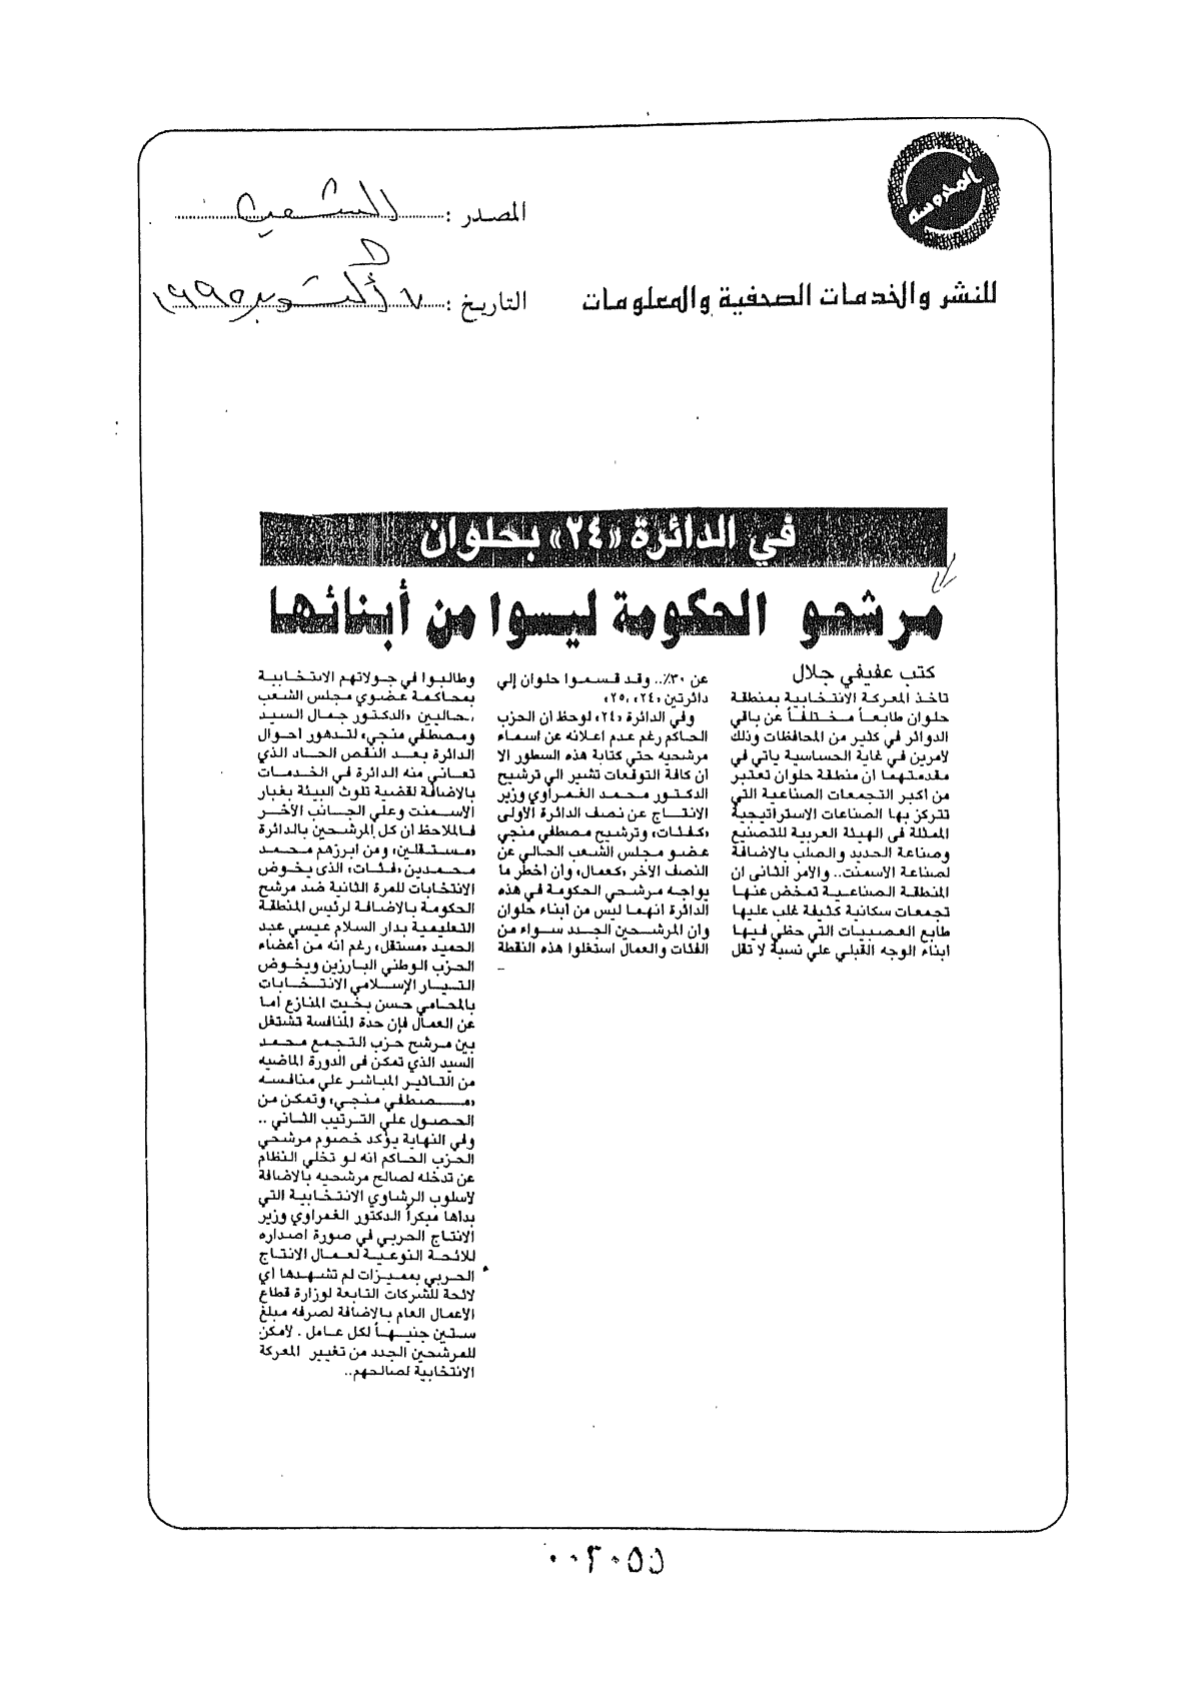 المحروسة
المصدر : الشعب
للنشر والخدمات الصحفية والمعلومات
التاريخ : ٧ أكتوبر ١٩٩٥
في الدائرة «٢٤» بحلوان
مرشحو الحكومة ليسوا من أبنائها
كتب عفيفي جلال
تاخذ المعركة الانتخابية بمنطقة
حلوان طابعاً مختلفاً عن باقي
الدوائر في كثير من المحافظات وذلك
لامرين في غاية الحساسية ياتي في
مقدمتهما ان منطقة حلوان تعتبر
من اكبر التجمعات الصناعية التي
تتركز بها الصناعات الاستراتيجية
الممثلة فى الهيئة العربية للتصنيع
وصناعة الحديد والصلب بالاضافة
لصناعة الاسمنت.. والامر الثانى ان
المنطقة الصناعية تمخض عنها
تجمعات سكانية كثيفة غلب عليها
طابع العصبيات التي حظي فيها
ابناء الوجه القبلي علي نسبة لا تقل
عن ٣٠٪.. وقد قسموا حلوان إلي
دائرتين «٢٤، ٢٥»
وفي الدائرة «٢٤» لوحظ ان الحزب
الحاكم رغم عدم اعلانه عن اسماء
مرشحيه حتي كتابة هذه السطور الا
ان كافة التوقعات تشير الي ترشيح
الدكتور محمد الغمراوي وزير
الانتاج عن نصف الدائرة الأولى
«كفئات» وترشيح مصطفي منجي
عضو مجلس الشعب الحالي عن
النصف الآخر «كعمال» وان اخطر ما
يواجه مرشحي الحكومة في هذه
الدائرة انهما ليس من ابناء حلوان
وان المرشحين الجدد سواء من
الفئات و العمال استغلوا هذه النقطة
وطالبوا في جولاتهم الانتخابية
بمحاكمة عضوي مجلس الشعب
حاليين «الدكتور جمال السيد
ومصطفي منجي» لتدهور احوال
الدائرة بعد النقص الحاد الذي
تعاني منه الدائرة في الخدمات
بالاضافة لقضية تلوث البيئة بغبار
الاسمنت وعلي الجانب الآخر
فالملاحظ ان كل المرشحين بالدائرة
«مستقلين» ومن ابرزهم محمد
محمدين «فئات» الذى يخوض
الانتخابات للمرة الثانية ضد مرشح
الحكومة بالاضافة لرئيس المنطقة
التعليمية بدار السلام عيسي عبد
الحميد «مستقل» رغم انه من أعضاء
الحزب الوطني البارزين ويخوض
التيار الإسلامي الانتخابات
بالمحامي حسن بخيت المنازع اما
عن العمال فإن حدة المنافسة تشتغل
بين مرشح حزب التجمع محمد
السيد الذي تمكن فى الدورة الماضيه
من التاثير المباشر علي منافسه
«مصطفي منجي» وتمكن من
الحصول علي الترتيب الثاني ..
وفي النهاية يؤكد خصوم مرشحي
الحزب الحاكم انه لو تخلي النظام
عن تدخله لصالح مرشحيه بالاضافة
لاسلوب الرشاوي الانتخابية التي
بداها مبكراً الدكتور الغمراوي وزير
الانتاج الحربي في صورة اصداره
للائحة النوعية لعمال الانتاج
الحربي بمميزات لم تشهدها اي
لائحة للشركات التابعة لوزارة قطاع
الاعمال العام بالاضافة لصرفه مبلغ
ستين جنيهاً لكل عامل . لامكن
للمرشحين الجدد من تغيير المعركة
الانتخابية لصالحهم..
٠٠٢٠٥٥